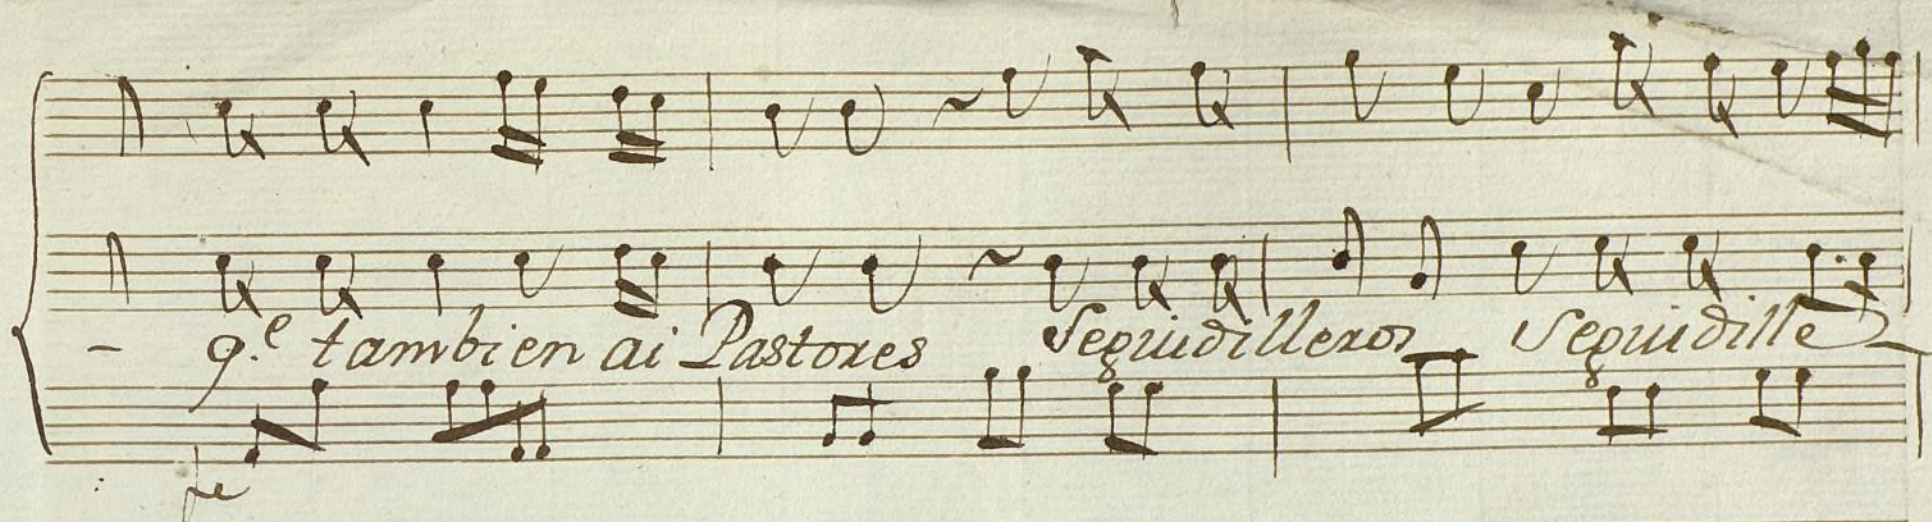 - q.e tambien ai Pastores Seguidilleros Seguidille-
fe